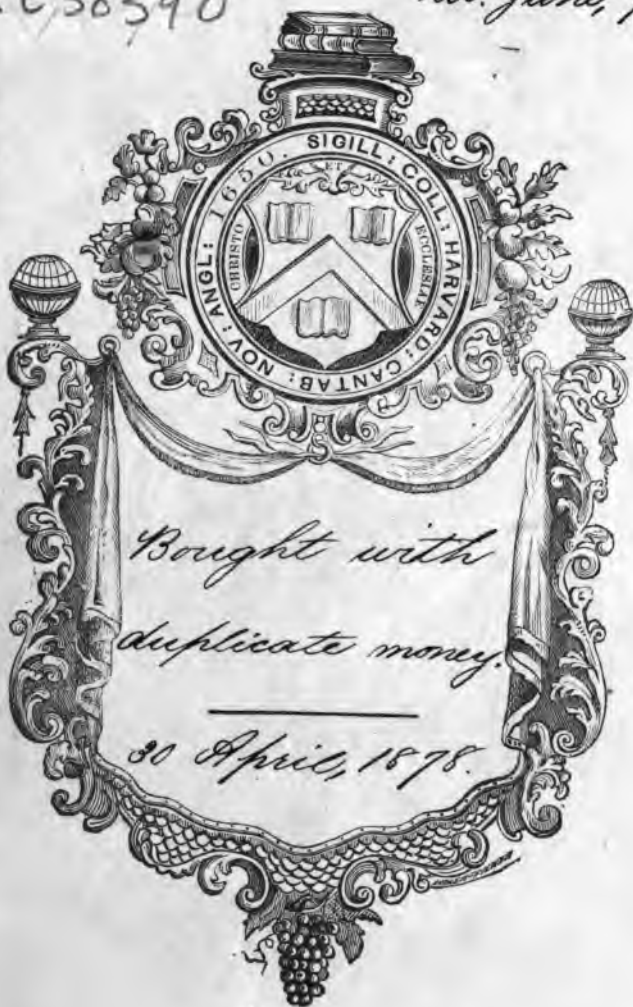 C 58590
June, 1
SIGILL: COLL: HARVARD: CANTAB: NOV: ANGL: 1650.
ET
CHRISTO
ECCLESIAE
Bought with
duplicate money.
30 April, 1878.